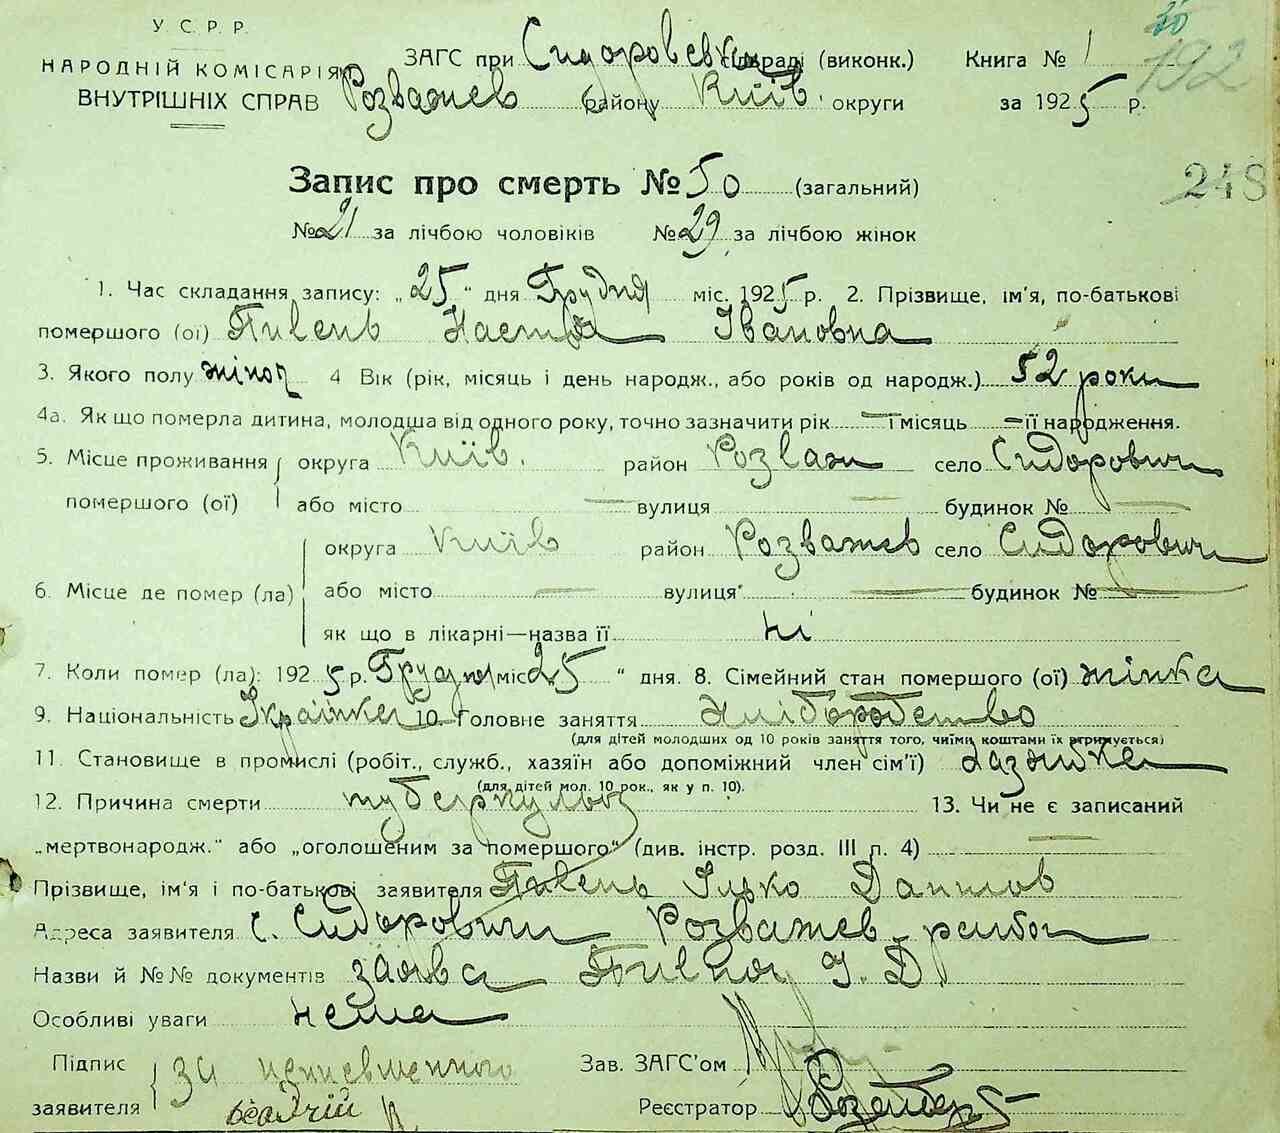 У.С.Р.Р.
НАРОДНІЙ КОМІСАРІЯТ
ВНУТРІШНІХ СПРАВ
35
192
ЗАГС при Сидоровській сільраді (виконк.) Книга № 1
Розважев району Київ. округи за 1925 р.
248
Запис про смерть № 50 (загальний)
№ 21 за лічбою чоловіків № 29 за лічбою жінок
1. Час складання запису: „25“ дня Грудня міс. 1925 р. 2. Прізвище, ім'я, по-батькові
помершого (ої) Пивень Настя Івановна
3. Якого полу жіноч 4 Вік (рік, місяць і день народж., або років од народж.) 52 роки
4а. Як що померла дитина, молодша від одного року, точно зазначити рік — і місяць — її народження.
5. Місце проживання помершого (ої) округа Київ. район Розваж село Сидорович
або місто — вулиця — будинок № —
6. Місце де помер (ла) округа Київ район Розважев село Сидорович
або місто — вулиця — будинок № —
як що в лікарні—назва її ні
7. Коли помер (ла): 1925 р. Грудня міс 25 “ дня. 8. Сімейний стан помершого (ої) жінка
9. Національність Українка 10 Головне заняття Хліборобство
(для дітей молодших од 10 років заняття того, чиїми коштами їх отримується)
11. Становище в промислі (робіт., служб., хазяїн або допоміжний член сім'ї) хазяйка
(для дітей мол. 10 рок., як у п. 10).
12. Причина смерти туберкульоз 13. Чи не є записаний
„мертвонародж.“ або „оголошеним за помершого“ (див. інстр. розд. III п. 4) —
Прізвище, ім'я і по-батькові заявителя Пивень Ілько Данилов
Адреса заявителя с. Сидоровичи Розважев район
Назви й №№ документів заява Пивня І. Д.
Особливі уваги нема
Підпис заявителя За неписьменного
Зав. ЗАГС'ом
Реєстратор